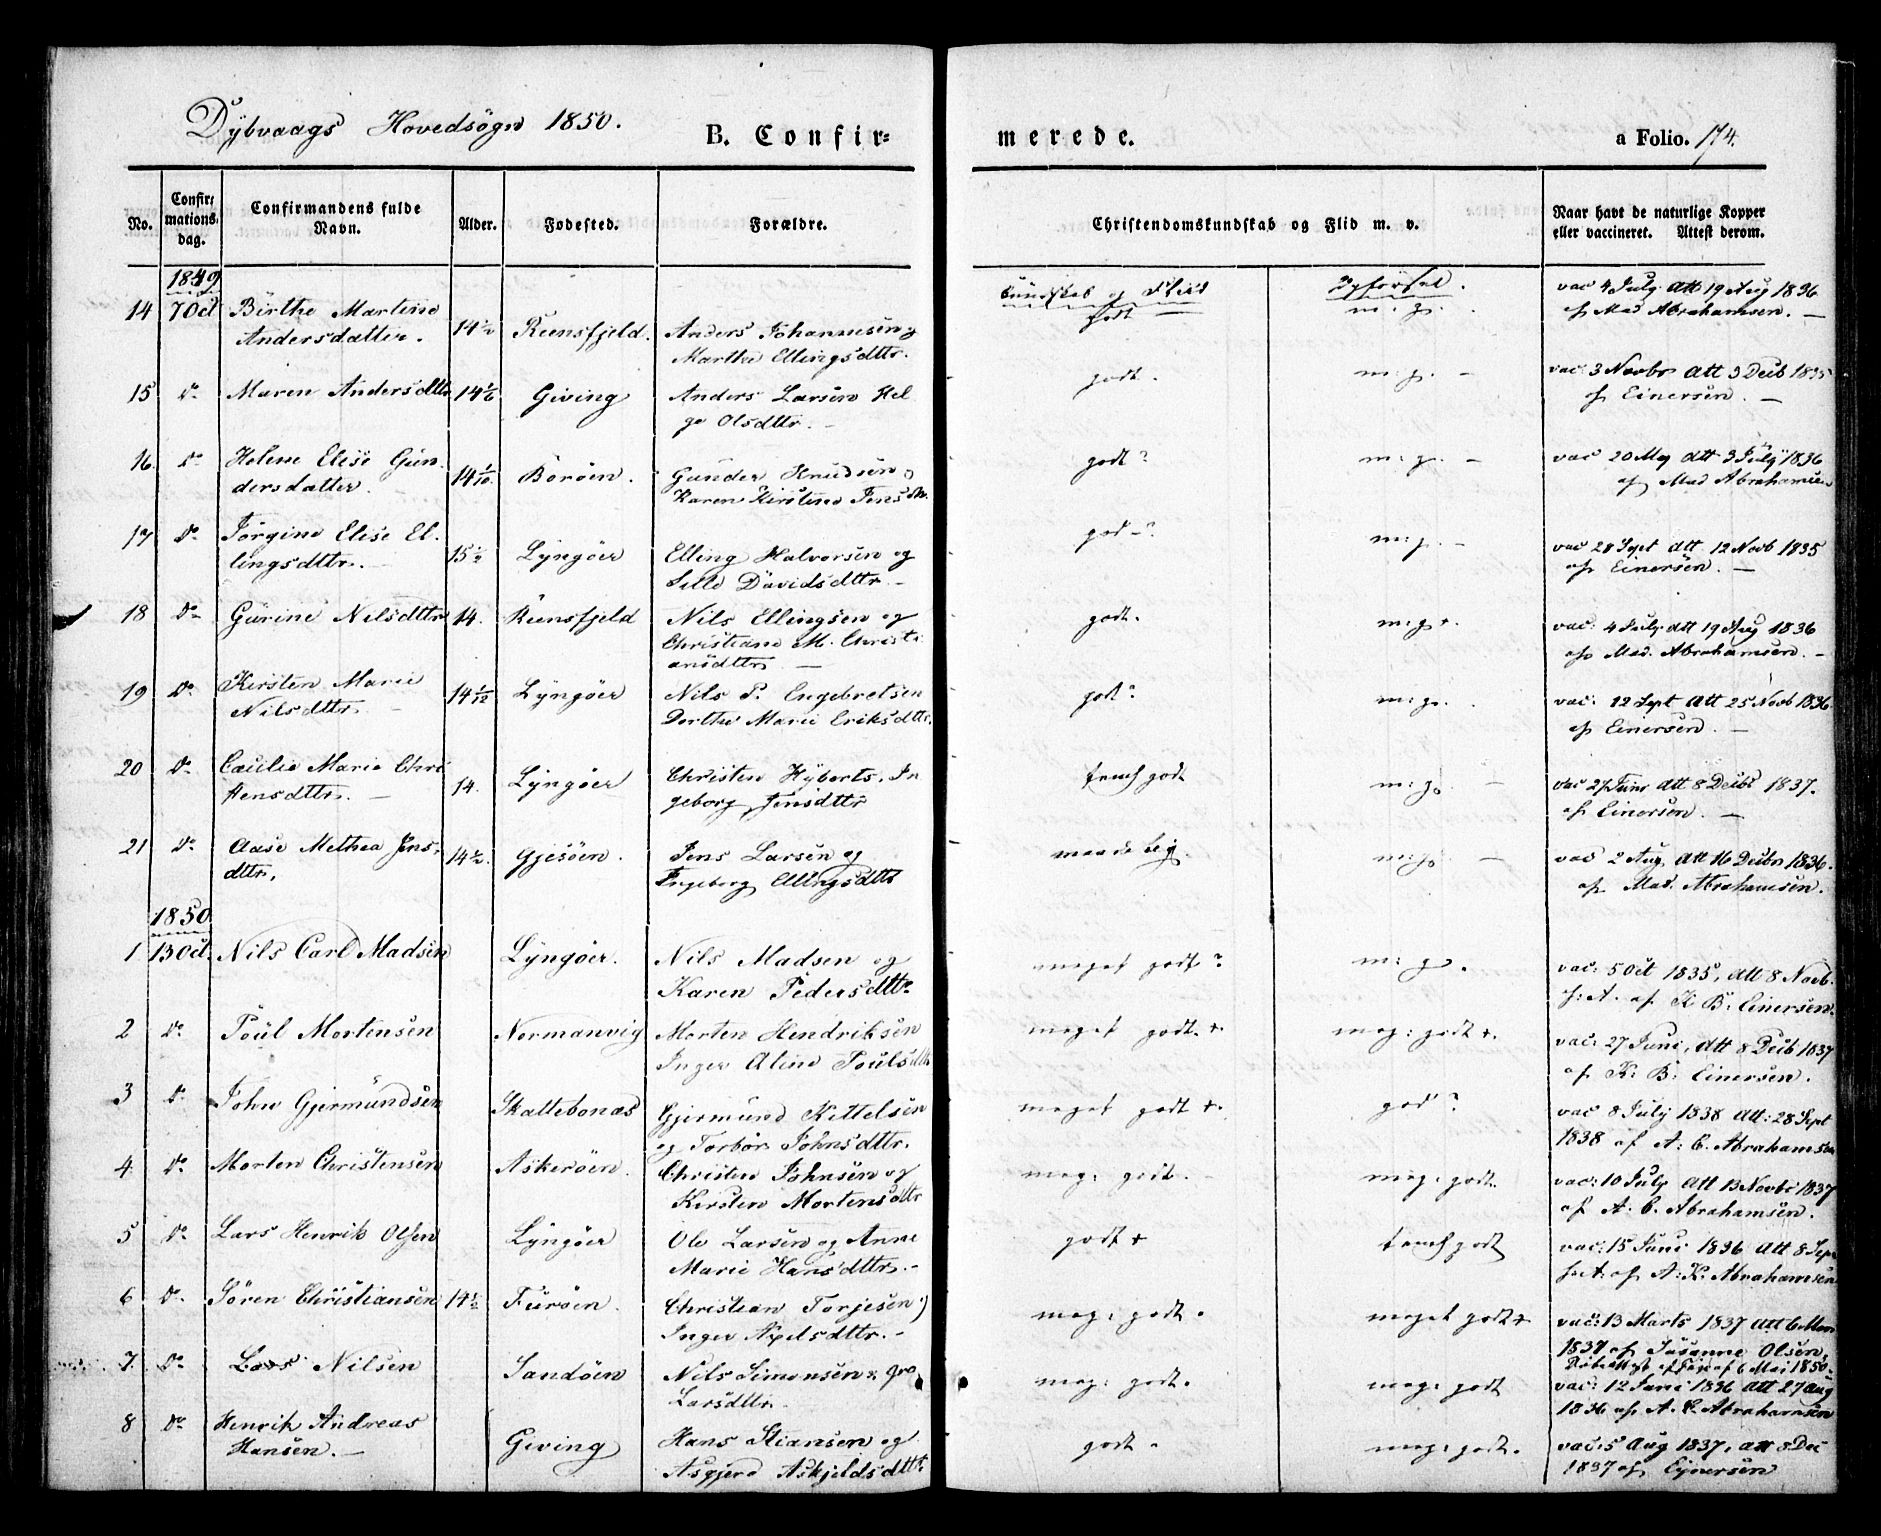 Dybvaags Hovedsøgn 1850.
B. Confirmerede.
a Folio. 174.
No. Confirmationsdag. Confirmandens fulde Navn. Alder. Fødested. Forældre. Christendomskundskab og Flid m. v. Naar havt de naturlige Kopper eller vaccineret. Attest derom.
1849 Kundskab og Flid Opførsel.
14 7 Oct Birthe Martine 14 1/2 Reensfjeld. Anders Johannesen og godt m: g. vac 4 July Att 19 Aug 1836
Andersdatter. Marthe Ellingsdttr. af Mad Abrahamsen. —
15 Do Maren Andersdttr 14 1/2 Giving Anders Larsen Hel godt. m: g. — vac: 3 Novbr Att 3 Decb 1835
ge Olsdttr. — af Einersen. —
16. Do Helene Elise Gun- 14 1/10. Borøen. Gunder Knudsen og godt? m: g. — vac 20 May Att 3 July 1836
dersdatter. Karen Kirstine Jensdtr. af Mad Abrahamsen
17 Do Jørgine Elise El- 15 1/2 Lyngøer Elling Halvorsen og god—? m: g. — vac 28 Sept Att 12 Novb 1835
lingsdttr. — Sille Davidsdttr. — af Einersen. —
18 Do Gurine Nilsdttr 14. Reensfjeld Nils Ellingsen og godt. m: g+. vac: 4 July Att 19 Aug 1836
Christiane M. Christi- af Mad. Abrahamsen. —
ansdttr —
19 Do Kirsten Marie 14 1/12 Lyngøer Nils P. Engebretsen godt? m: g. vac: 12 Sept Att 25 Novb 1836
Nilsdttr. — Dorthe Marie Eriksdttr. af Einersen. —
20 Do Cæcilie Marie Chri 14. Lyngøer Christen Nyberts. In temml godt m: g. — vac 27 Juni Att 8 Decbr 1837.
stensdttr. — geborg Jensdttr af Einersen. —
21 Do Aase Methea Jens- 14 1/2. Gjesøen. Jens Larsen og maadelig. m: g. — vac 2 Aug Att 16 Decbr 1836.
dttr. Ingeborg Ellingsdttr af Mad. Abrahamsen.
1850
1 13 Oct. Nils Carl Madsen Lyngøer. Nils Madsen og meget godt? m: g. vac: 5 Oct 1835, Att 8 Novb.
Karen Pedersdttr s: A. af K B. Einersen.
2 Do Poul Mortensen Normanvig Morten Hendriksen meget godt. +. meg: godt +. vac: 27 Juni, Att 8 Decb 1837
Inger Aline Poulsdttr af K: B: Einersen.
3 Do John Gjermundsen Skattebonæs Gjermund Kittelsen meget godt +. god? vac 8 July 1838 Att: 28 Sept
og Torbør Johnsdttr. 1838 af A: C. Abrahamsen
4. Do Morten Christensen Askerøen. Christen Johnsen og meg: godt. — meg: godt. vac: 10 July Att 13 Novbr 1837
Kirsten Mortensdttr af A. C. Abrahamsen.
5 Do Lars Henrik Olsen Lyngøer Ole Larsen og Anne godt + temml godt vac: 15 Juni 1836 Att 8 Sept
Marie Hansdttr. — s: A: af A: K. Abrahamsen
6 Do Søren Christiansen 14 1/2 Furøen. Christian Torjesen meg: godt. meget godt + vac: 13 Marts 1837 Att 6
Inger Axelsdttr. — 1837 af Susanne Olsen,
6 Mai 1850.
7. Do Lars Nilsen Sandøen Nils Simonsen meg: godt. meg: godt vac: 12 Juni 1836 Att 27 Aug
Larsdttr. 1836 af A. C. Abrahamsen
8 Do Henrik Andreas Giving Hans Stiansen og godt. meg: godt. vac: 5 Aug 1837, Att 8 Dec
Hansen. — Asgjerd Askjeldsdttr. 1837 af Eynersen